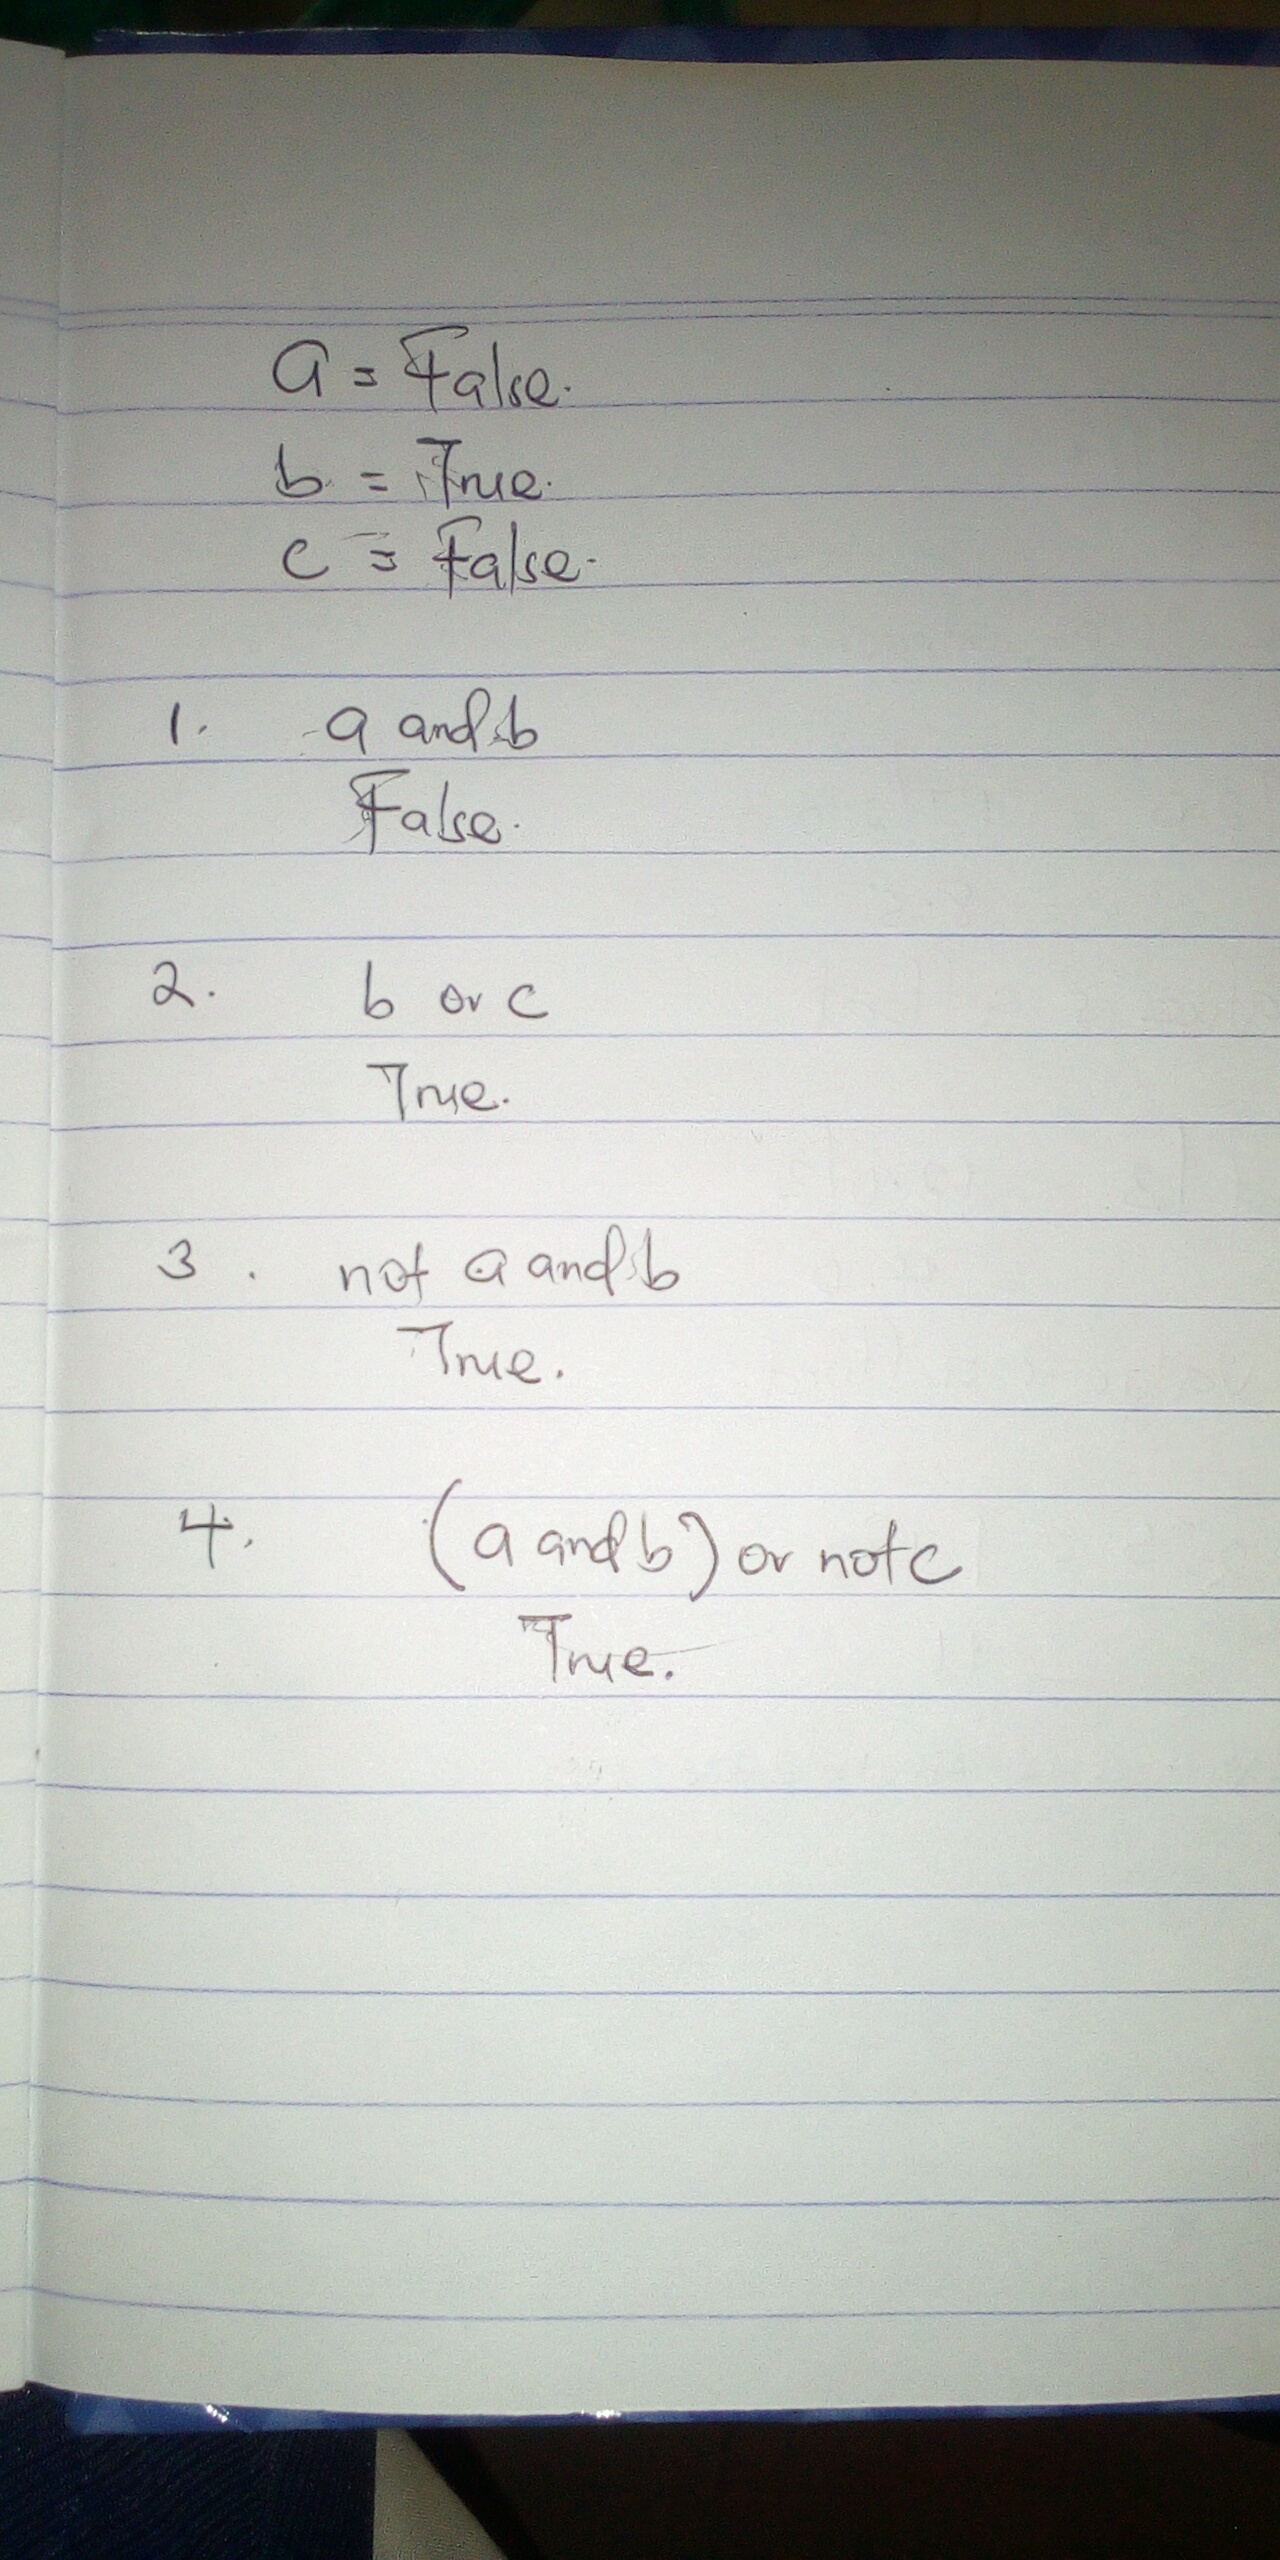 a = False.
b = True.
c = False.
1. a and b
False.
2. b or c
True.
3. not a and b
True.
4. (a and b) or not c
True.